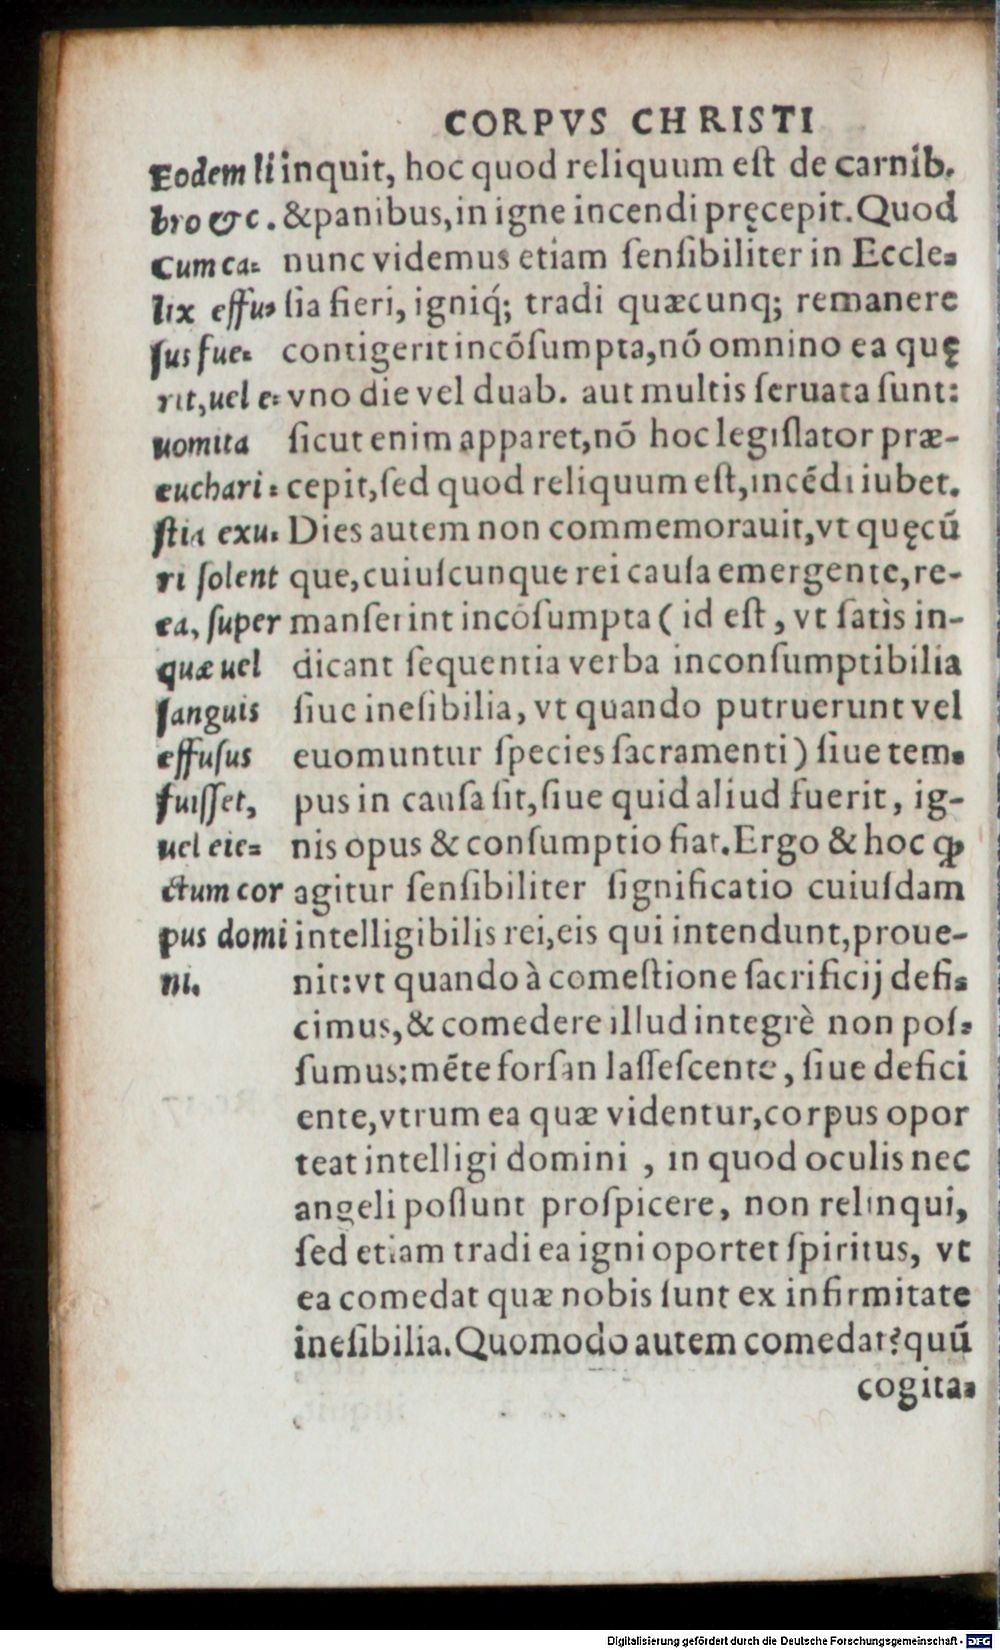 CORPVS CHRISTI
inquit, hoc quod reliquum eſt de carnib.
&panibus,in igne incendi pręcepit.Quod
nunc videmus etiam ſenſibiliter in Eccle-
ſia fieri, igniq́; tradi quæcunq; remanere
contigerit incõſumpta,nõ omnino ea quę
vno die vel duab. aut multis ſeruata ſunt:
ſicut enim apparet,nõ hoc legiſlator præ-
cepit,ſed quod reliquum eſt,incẽdi iubet.
Dies autem non commemorauit,vt quęcũ
que,cuiuſcunque rei cauſa emergente,re-
manſerint incõſumpta ( id eſt , vt ſatis in-
dicant ſequentia verba inconſumptibilia
ſiue ineſibilia, vt quando putruerunt vel
euomuntur ſpecies ſacramenti) ſiue tem-
pus in cauſa ſit,ſiue quid aliud fuerit, ig-
nis opus & conſumptio fiat.Ergo & hoc ꝙ
agitur ſenſibiliter ſignificatio cuiuſdam
intelligibilis rei,eis qui intendunt,proue-
nit:vt quando à comeſtione ſacrificij defi-
cimus,& comedere illud integrè non poſ-
ſumus:mẽte forſan laſſeſcente, ſiue defici
ente,vtrum ea quæ videntur,corpus opor
teat intelligi domini , in quod oculis nec
angeli poſſunt proſpicere, non relinqui,
ſed etiam tradi ea igni oportet ſpiritus, vt
ea comedat quæ nobis ſunt ex infirmitate
ineſibilia.Quomodo autem comedat?quũ
cogita-
Eodem li
bro &c.
Cum ca-
lix effu-
ſus fue-
rit,uel e-
uomita
euchari-
ſtia exu-
ri ſolent
ea, ſuper
quæ uel
ſanguis
effuſus
fuiſſet,
uel eie-
ctum cor
pus domi
ni.
Digitalisierung gefördert durch die Deutsche Forschungsgemeinschaft - DFG